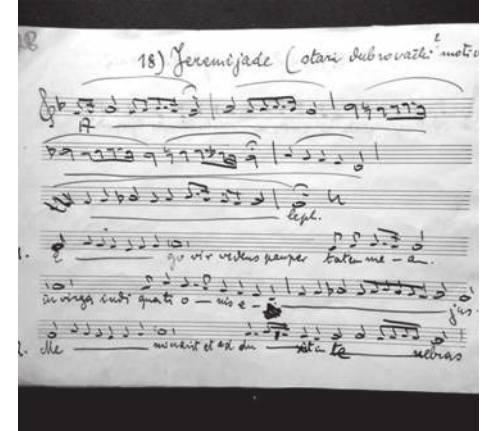 18
18) Jeremijade (stari dubrovački motiv
A
leph.
1. E go vir videns pauper tatem me - a.
in virga indi gnati o - nis e - jus.
2. Me minavit et ad du xit in te nebras